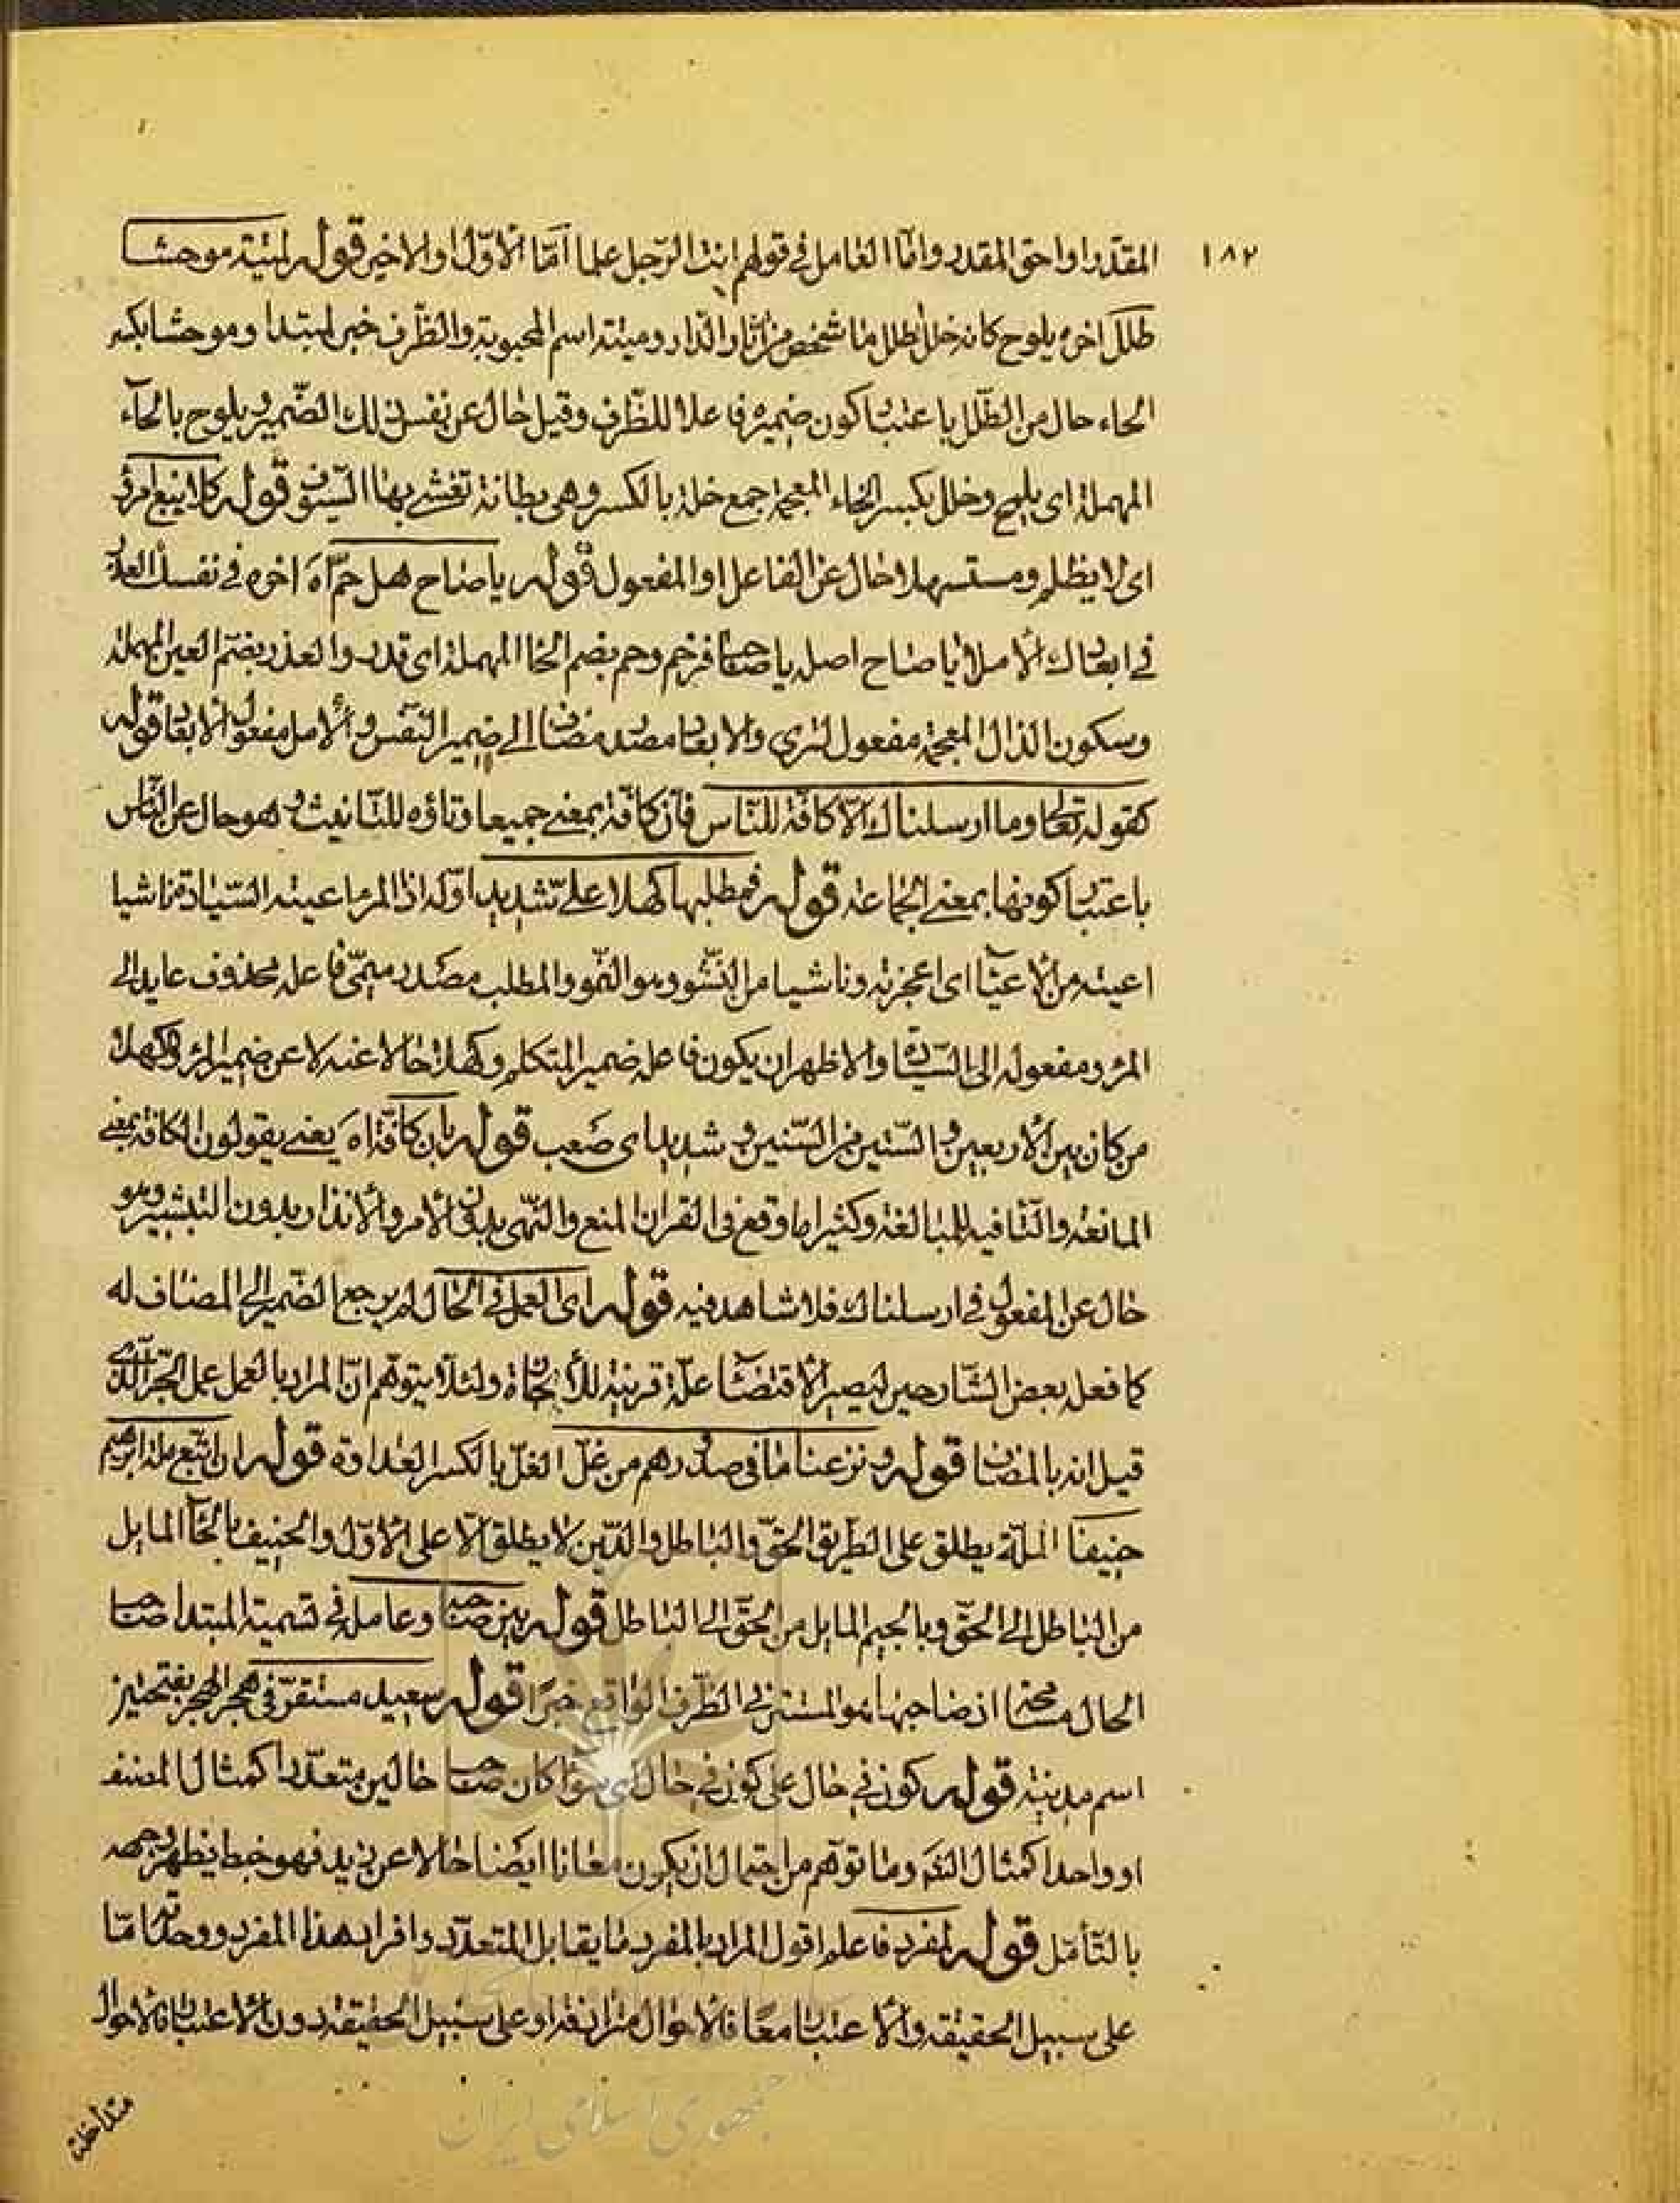 ١٨٢
المقدّر او احقّ المقدر وامّا العامل فى قولهم انت الرّجل علما امّا الاوّل او الاخير قوله لميّة موحشا
طلل اخره يلوح كانه خلل طلل ما شخص من آثار الدّار وميّته اسم المحبوبة والظّرف خبر لمبتدا وموحشا بكسر
الحاء حال من الطّلل باعتبار كون ضميره فاعلا للظّرف وقيل حال عن نفس ذلك الضّمير ويلوح بالحآء
المهملة اى يلمع وخلل بكسر الخاء المعجمة جمع خلة بالكسر وهى بطانة تغشى بها السّيوف قوله كلا يتبع امرؤ
اى لا يظلم ومستسهلا حال عن الفاعل او المفعول قوله يا صاح هل حمّ آه اخره فى نفسك العذر
فى ابعادك الاملا يا صاح اصله يا صاحب فرخم وحم بضم الحا المهملة اى قدر والعذر بضمّ العين المهملة
وسكون الذال المعجمة مفعول لترى والابعاد مصدر مضاف الى ضمير النّفس والامل مفعول الابعاد قوله
كقوله تعالى وما ارسلناك الّا كافّة للنّاس فانّ كافّة بمعنى جميعا وتاؤه للتّانيث وهو حال عن النّاس
باعتبار كونها بمعنى الجماعة قوله فمطلبها كهلا على شديد اوّله اذا المرء اعيته السّيادة ناشيا
اعيته من الاعيآء اى اعجزته وناشيا من النّشو وهو النّمو والمطلب مصدر ميمىّ فاعله محذوف عايد الى
المرء ومفعوله الى السّيادة والاظهر ان يكون فاعله ضمير المتكلم وكهلا حالا عنه لا عن ضمير المرء والكهل
من كان بين الاربعين والستين من السّنين وشديد اى صعب قوله بان كافّة اه يعنى يقولون الكافة بمعنى
المانعة والتّا فيه للمبالغة وكثيرا ما وقع فى القران المنع والنّهى بدون الامر والانذار بدون التبشير وهو
حال عن المفعول فى ارسلناك فلا شاهد فيه قوله اى العمل فى الحال لم يرجع الضّمير الى المضاف له
كما فعله بعض الشّارحين ليصير الاقتضآء علّة قريبة للأ ولئلّا يتوهّم انّ المراد بالعمل عمل الجرّ الّذى
قيل انه بالمضاف قوله ونزعنا ما فى صدورهم من غلّ الغلّ بالكسر العداوة قوله ان اتّبع ملة ابرهيم
حنيفا الملّة يطلق على الطّريق الحقّ والباطل والدّين لا يطلق الّا على الاوّل والحنيف بالحآء المايل
من الباطل الى الحقّ وبالجيم المايل من الحقّ الى الباطل قوله بين صاحبها وعامله فى تسمية المبتدا صاحب
الحال مسامحة اذ صاحبها هو المستتر فى الظّرف الواقع خبرا قوله سعيد مستقرّ فى هجر الهجر بفتحتين
اسم مدينة قوله كون فى حال على كون فى حال اى سوآء كان صاحب حالين متعدّدا كمثال المصنف
او واحدا كمثال الشّم وما توهّم من احتمال ان يكون معانا ايضا حالا عن زيد فهو خبط يظهر وجهه
بالتّأمّل قوله لمفرد فاعلم اقول المراد بالمفرد ما يقابل المتعدّد وافراد هذا المفرد ووحدته امّا
على سبيل الحقيقة والاعتبار معًا فالاحوال مترادفة او على سبيل الحقيقة دون الاعتبار فالاحوال
متداخلة
جمهوری اسلامی ایران